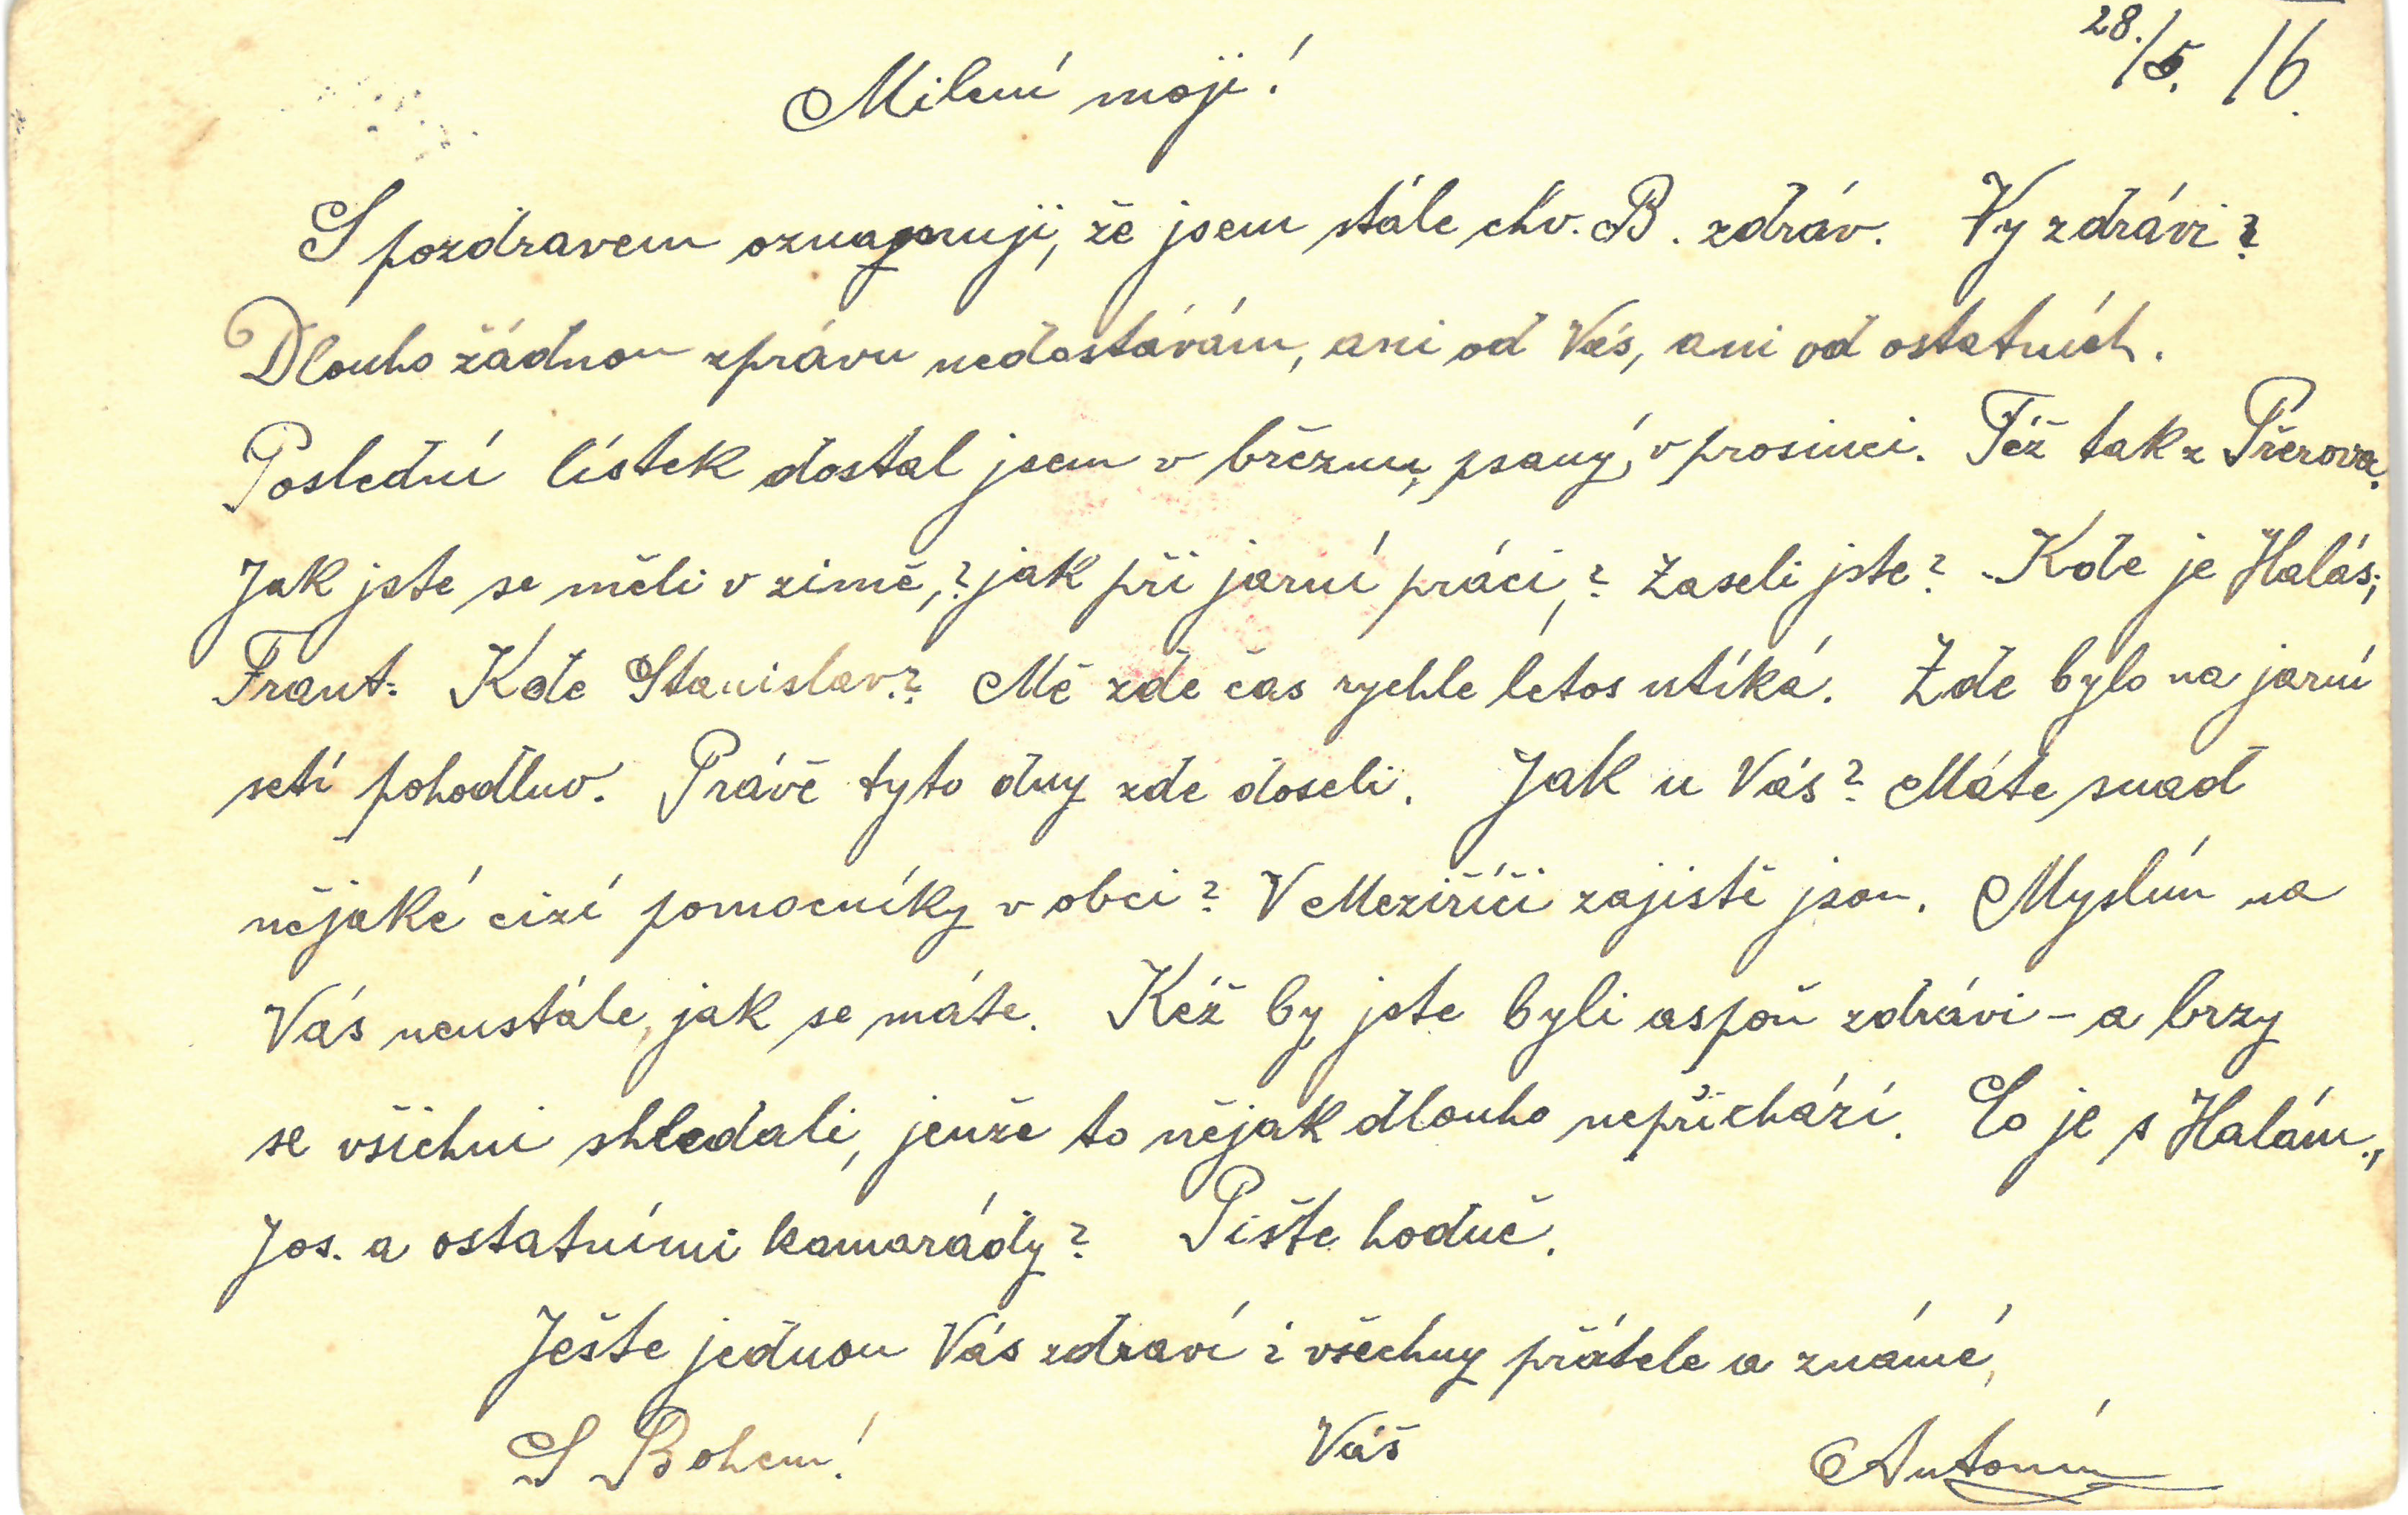 28./5. 16.
Milení moji!
S pozdravem oznamuji, že jsem stále chv. B. zdráv. Vy zdrávi?
Dlouho žádnou zprávu nedostávám, ani od Vás, ani od ostatních.
Poslední lístek dostal jsem v březnu, psaný v prosinci. Též tak z Přerova.
Jak jste se měli v zimě,? jak při jarní práci,? Zaseli jste? Kde je Halás;
Frant. Kde Stanislav? Mě zde čas rychle letos utíká. Zde bylo na jarní
setí pohodlno. Právě tyto dny zde doseli. Jak u Vás? Máte snad
nějaké cizí pomocníky v obci? V Meziříčí zajistě jsou. Myslím na
Vás neustále, jak se máte. Kéž by jste byli aspoň zdrávi - a brzy
se všichni shledali, jenže to nějak dlouho nepřichází. Co je s Halám.,
Jos. a ostatními kamarády? Pište hodně.
Ješte jednou Vás zdraví i všechny přátele a známé,
S Bohem! Váš Antonín